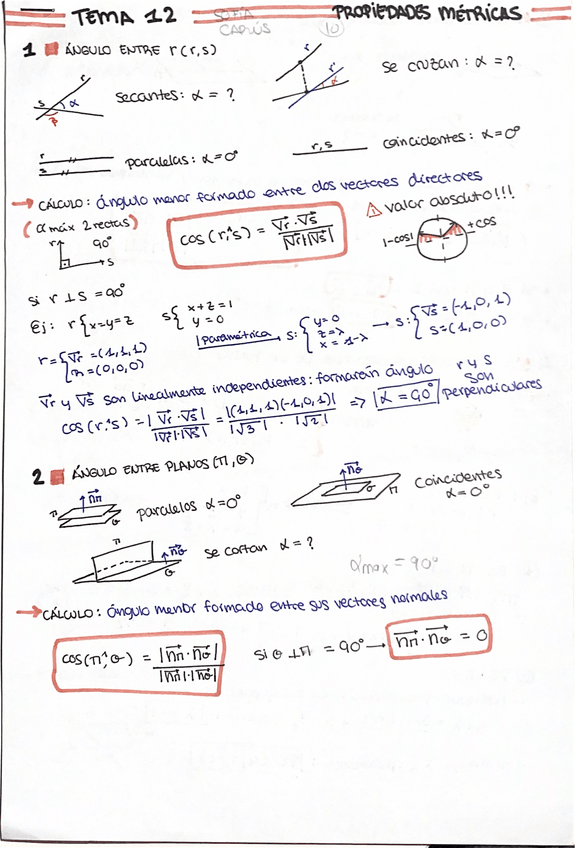 TEMA 12 SOFÍA CAPÚS 10 PROPIEDADES MÉTRICAS
1 ÁNGULO ENTRE r (r,s)
r s α β
secantes: α = ?
r r' s α
se cruzan: α = ?
r s
paralelas: α=0°
r,s
coincidentes: α=0°
→ CÁLCULO: ángulo menor formado entre dos vectores directores
(α máx 2 rectas)
r 90° s
cos(r,^s) = Vr→·Vs→ / |Vr→||Vs→|
⚠ valor absoluto!!!
|-cos| +cos
si r ⊥ s = 90°
Ej: r { x=y=z s { x+z=1 y=0
| paramétrica → s: { y=0 z=λ x=1-λ → s: { Vs→=(-1,0,1) S=(1,0,0)
r = { Vr→=(1,1,1) =(0,0,0)
Vr→ y Vs→ son linealmente independientes: formarán ángulo
cos(r,^s) = |Vr→·Vs→| / |Vr→|·|Vs→| = |(1,1,1)(-1,0,1)| / |√3|·|√2| ⇒ |α=90°| r y s son perpendiculares
2 ÁNGULO ENTRE PLANOS (π, θ)
nπ→ π θ
paralelos α=0°
nθ→ θ π
coincidentes α=0°
π nθ→ θ
se cortan α = ?
αmax = 90°
→ CÁLCULO: ángulo menor formado entre sus vectores normales
cos(π,^θ) = |nπ→·nθ→| / |nπ→|·|nθ→|
si θ ⊥ π = 90° → nπ→·nθ→ = 0